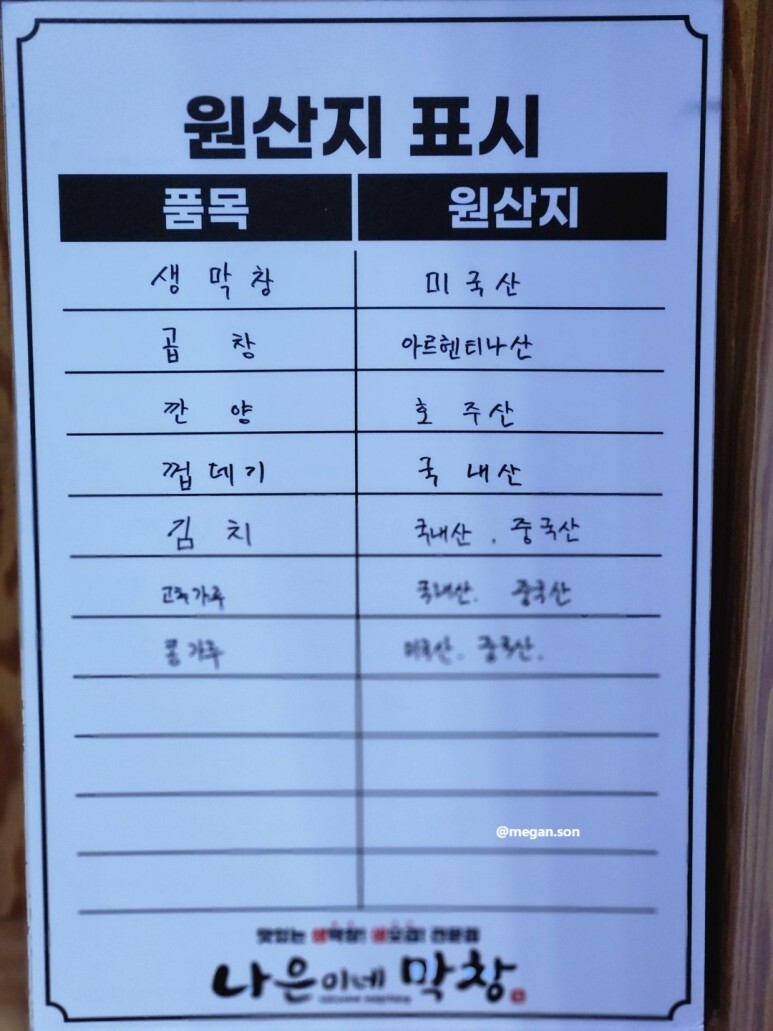 원산지 표시
품목 원산지
생막창 미국산
곱창 아르헨티나산
깐양 호주산
껍데기 국내산
김치 국내산. 중국산
고춧가루 국내산. 중국산
콩가루 미국산. 중국산.
@megan.son
맛있는 생막창! 생오겹! 전문점
나은이네 막창